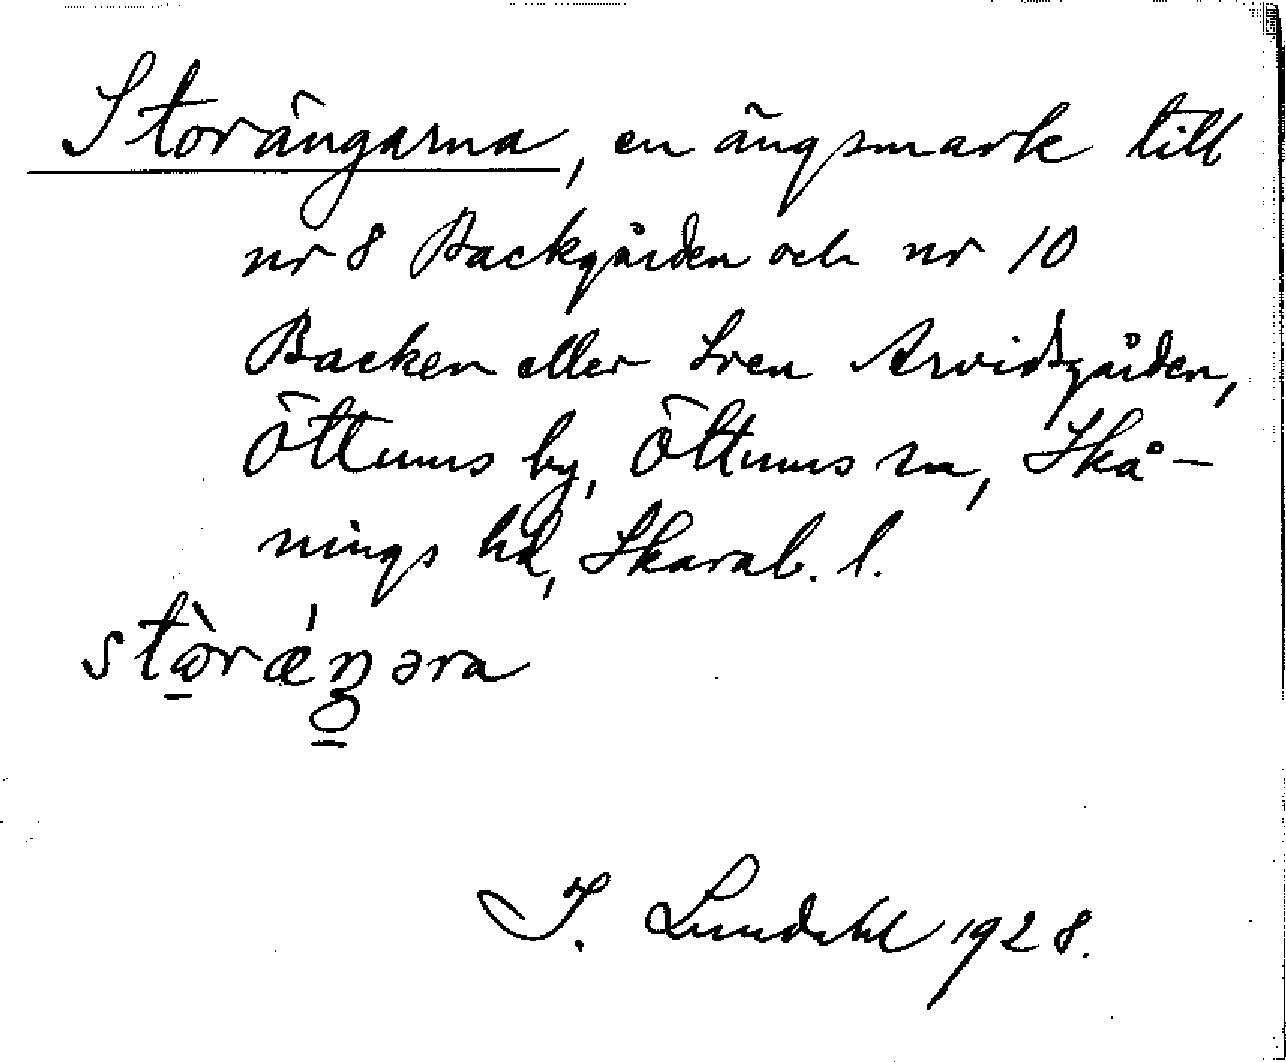 Storängarna, en ängsmark till
nr 8 Backgården och nr 10
Backen eller Sven Arvidsgården,
Öttums by, Öttums sn, Skå-
nings hd, Skarab. l.
stɷ̀rǽŋəra
I. Lundahl 1928.